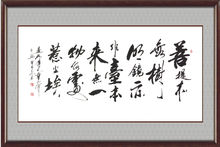 菩提本
無樹明
鏡亦
非臺本
来無一
物何處
惹塵埃